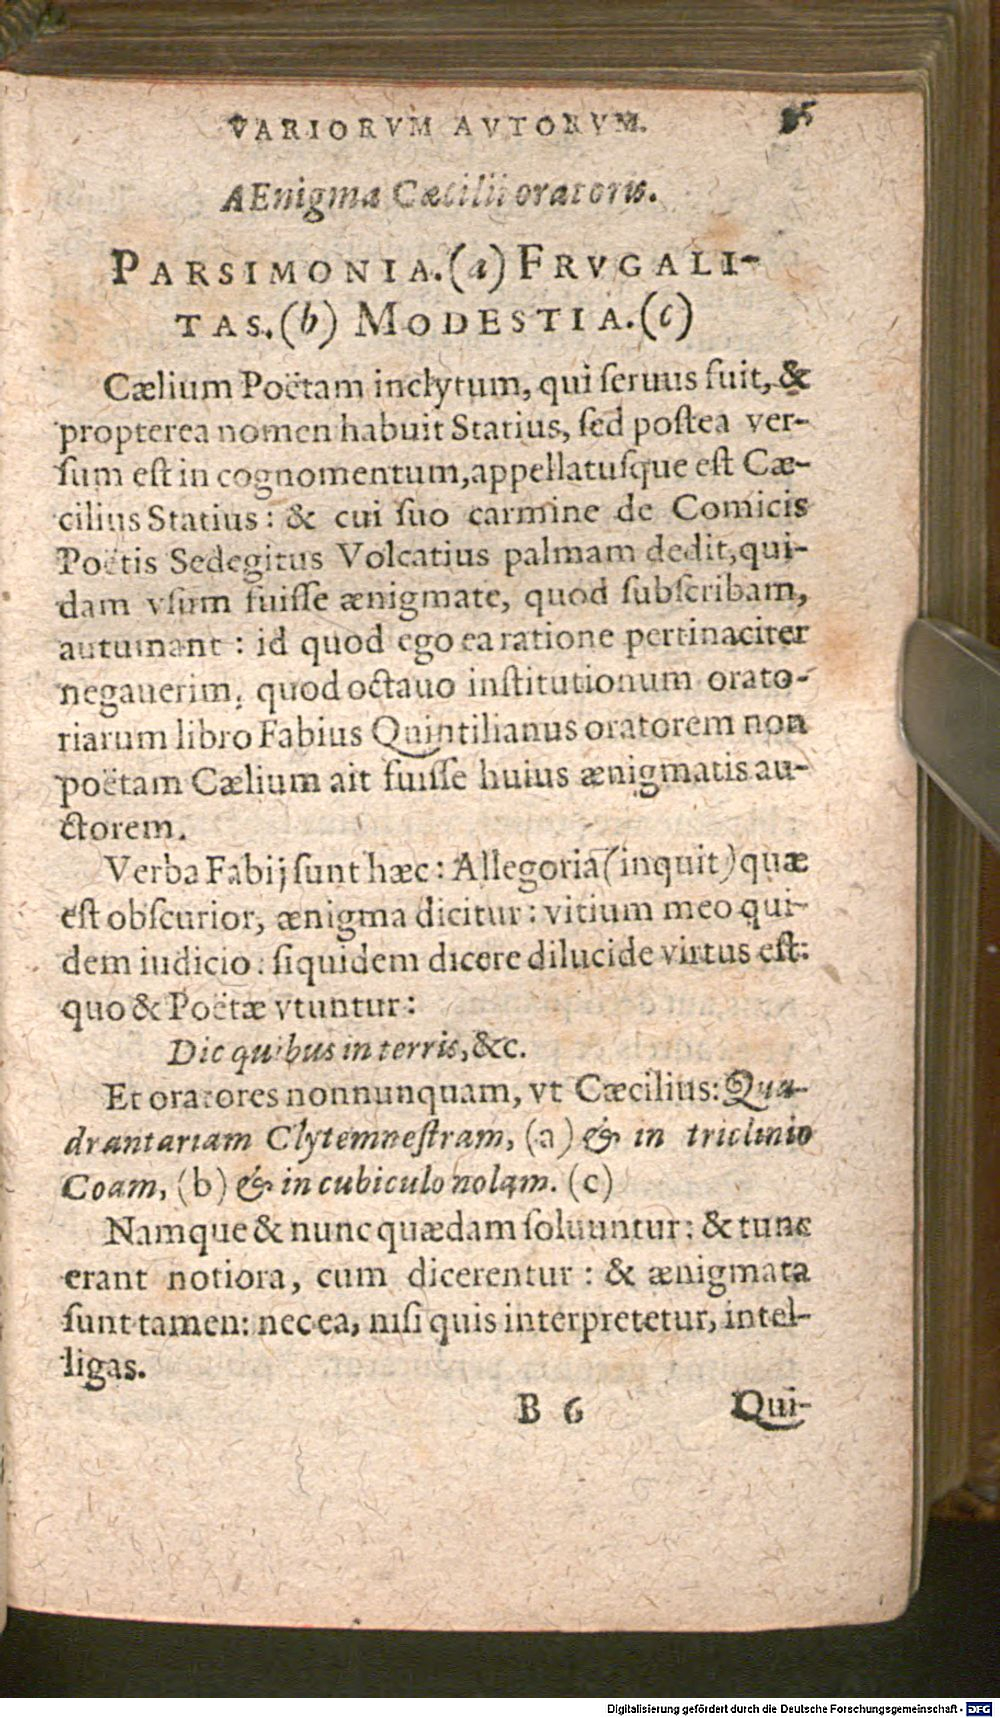 VARIORVM AVTORVM. 35
AEnigma Cæcilii oratoris.
PARSIMONIA.(a) FRVGALI-
TAS.(b) MODESTIA.(c)
Cælium Poëtam inclytum, qui seruus fuit, &
propterea nomen habuit Statius, sed postea ver-
sum est in cognomentum, appellatusque est Cæ-
cilius Statius: & cui suo carmine de Comicis
Poëtis Sedegitus Volcatius palmam dedit, qui-
dam vsum fuisse ænigmate, quod subscribam,
autumant: id quod ego ea ratione pertinaciter
negauerim, quod octauo institutionum orato-
riarum libro Fabius Quintilianus oratorem non
poëtam Cælium ait fuisse huius ænigmatis au-
ctorem.
Verba Fabij sunt hæc: Allegoria (inquit) quæ
est obscurior, ænigma dicitur: vitium meo qui-
dem iudicio: siquidem dicere dilucide virtus est:
quo & Poëtæ vtuntur:
Dic quibus in terris, &c.
Et oratores nonnunquam, vt Cæcilius: Qua-
drantariam Clytemnestram, (a) & in triclinio
Coam, (b) & in cubiculo nolam. (c)
Namque & nunc quædam soluuntur: & tunc
erant notiora, cum dicerentur: & ænigmata
sunt tamen: nec ea, nisi quis interpretetur, intel-
ligas.
B 6 Qui-
Digitalisierung gefördert durch die Deutsche Forschungsgemeinschaft - DFG